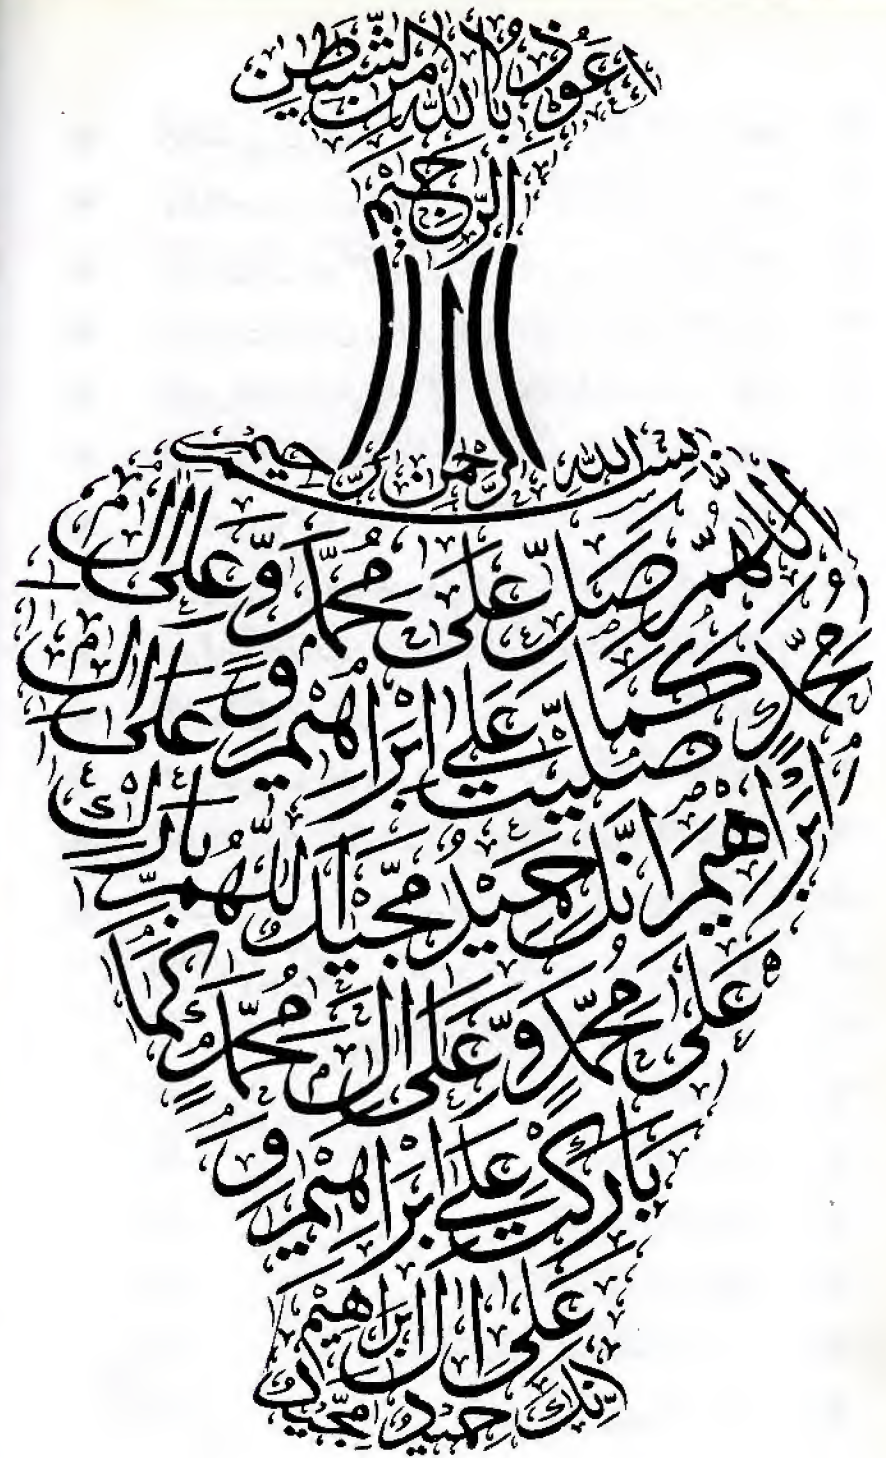 اعوذ بالله من الشيطن
الرجيم
بسم الله الرحمن الرحيم
اللهم صل على محمد وعلى ال
محمد كما صليت على ابرهيم وعلى ال
ابرهيم انك حميد مجيد اللهم بارك
على محمد وعلى ال محمد كما
باركت على ابرهيم و
على ال ابرهيم
انك حميد مجيد